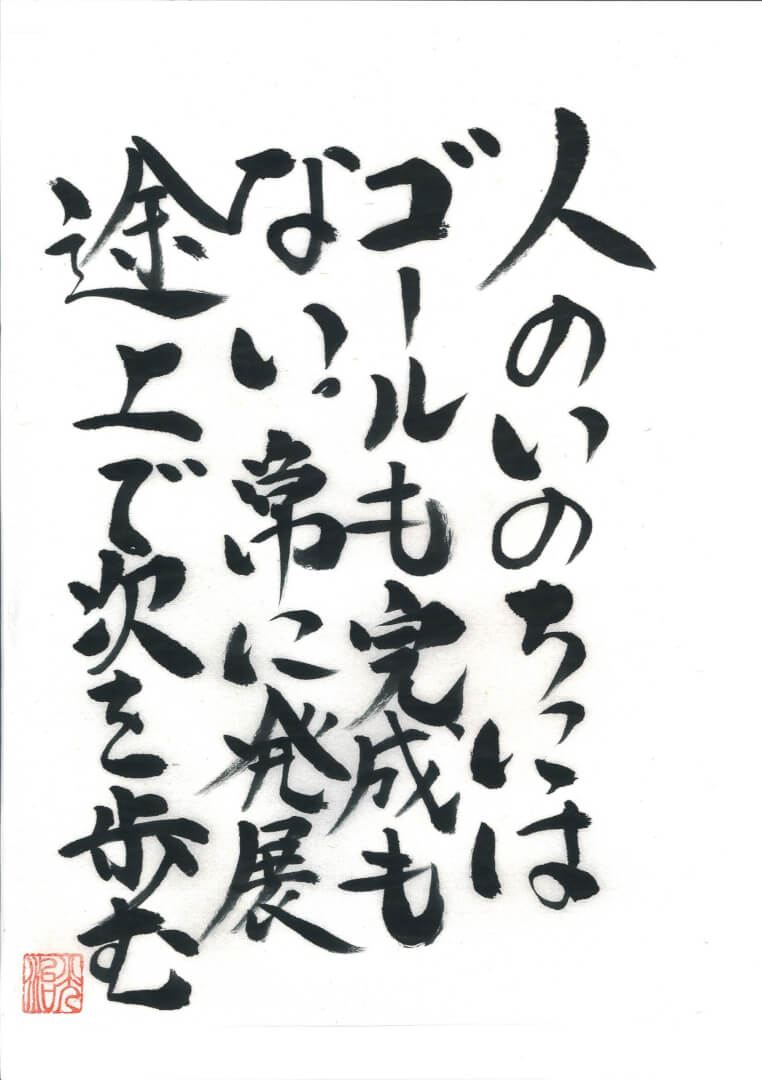 人のいのちには
ゴールも完成も
ない。常に発展
途上で次を歩む